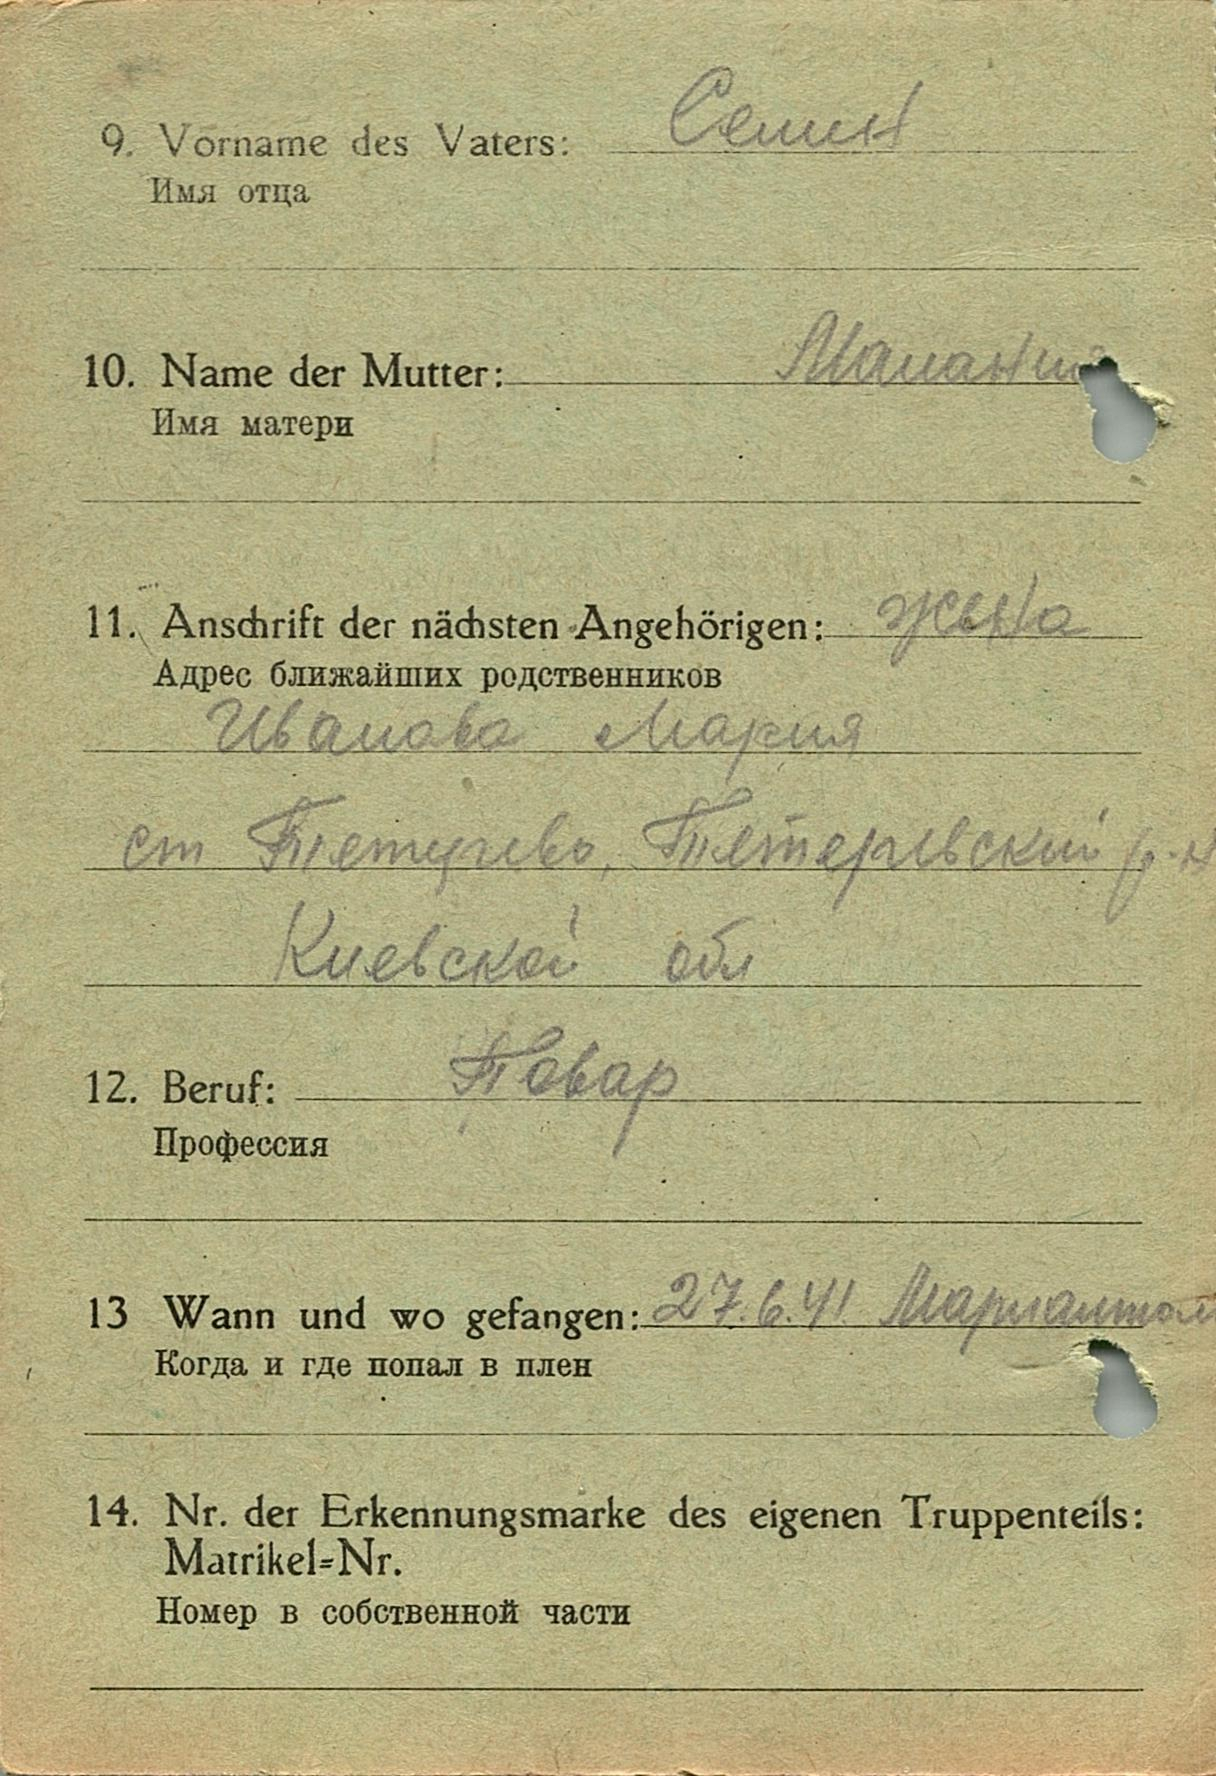 9. Vorname des Vaters: Семин
Имя отца
10. Name der Mutter: Малания
Имя матери
11. Anschrift der nächsten Angehörigen: жена
Адрес ближайших родственников
Иванова Мария
ст Тетерево, Тетеревский р-н
Киевской обл
12. Beruf: Повар
Профессия
13 Wann und wo gefangen: 27.6.41 Мариамполь
Когда и где попал в плен
14. Nr. der Erkennungsmarke des eigenen Truppenteils:
Matrikel=Nr.
Номер в собственной части